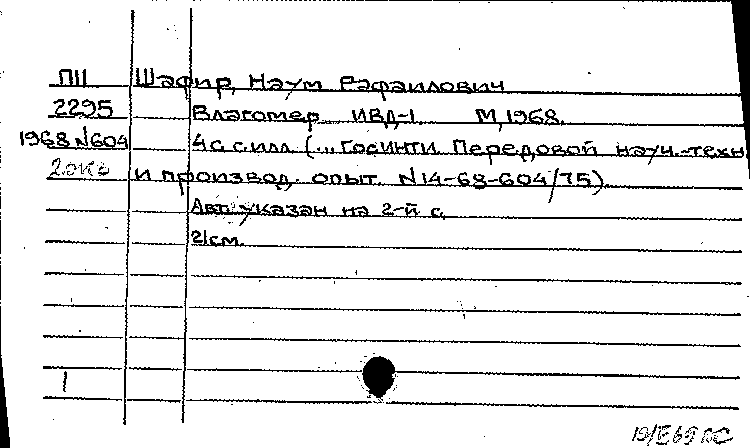 П11 Шафир, Наум Рафаилович
2295 Влагомер ИВД-1. М, 1968.
1968 N604 4 с. с илл. (... ГОСИНТИ. Передовой науч.-техн.
2 экз и производ. опыт. N14-68-604/75).
Авт. указан на 2-й с.
21см.
1